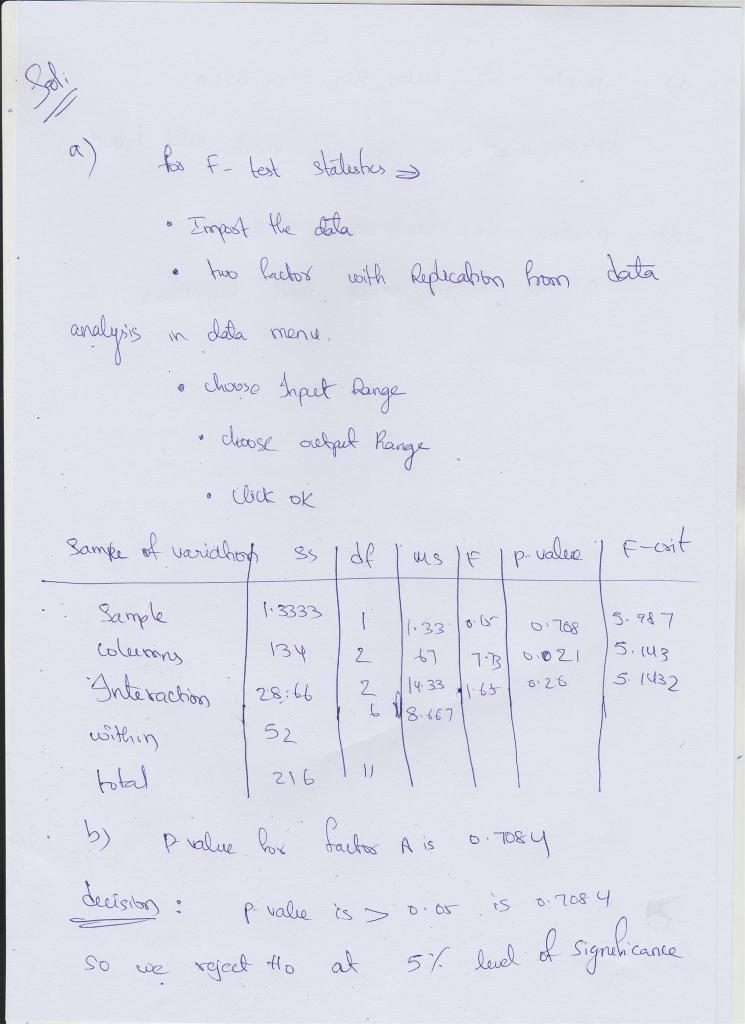 Sol:
a) for F- test statistics ⇒
• Import the data
• two factor with Replication from data
analysis in data menu.
• choose Input Range
• choose output Range
• click ok
Sample of variation SS df MS F p-value F-crit
Sample 1.3333 1 1.33 0.15 0.708 5.987
columns 134 2 67 7.73 0.021 5.143
Interaction 28.66 2 14.33 1.65 0.26 5.1432
within 52 6 8.667
total 216 11
b) P value for factor A is 0.7084
decision : p value is > 0.05 is 0.7084
so we reject Ho at 5% level of significance